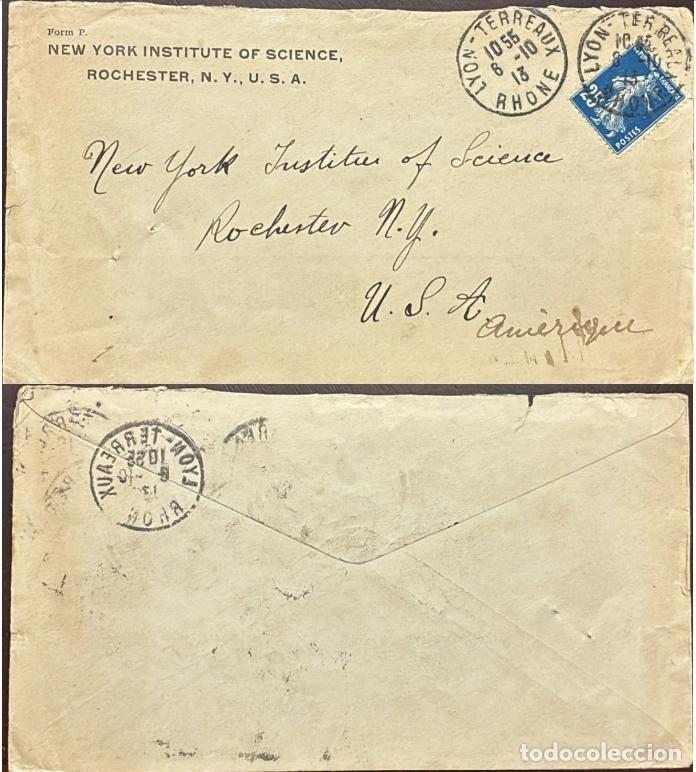 Form P.
NEW YORK INSTITUTE OF SCIENCE,
ROCHESTER, N. Y., U. S. A.
LYON-TERREAUX
10 55
6 -10
13
RHONE
LYON-TERREAUX
10 55
13
RHONE
25
POSTES
New York Institue of Science
Rochester N.Y.
U. S. A.
Amérique
LYON-TERREAUX
10 55
6 -10
13
RHONE
todocoleccion